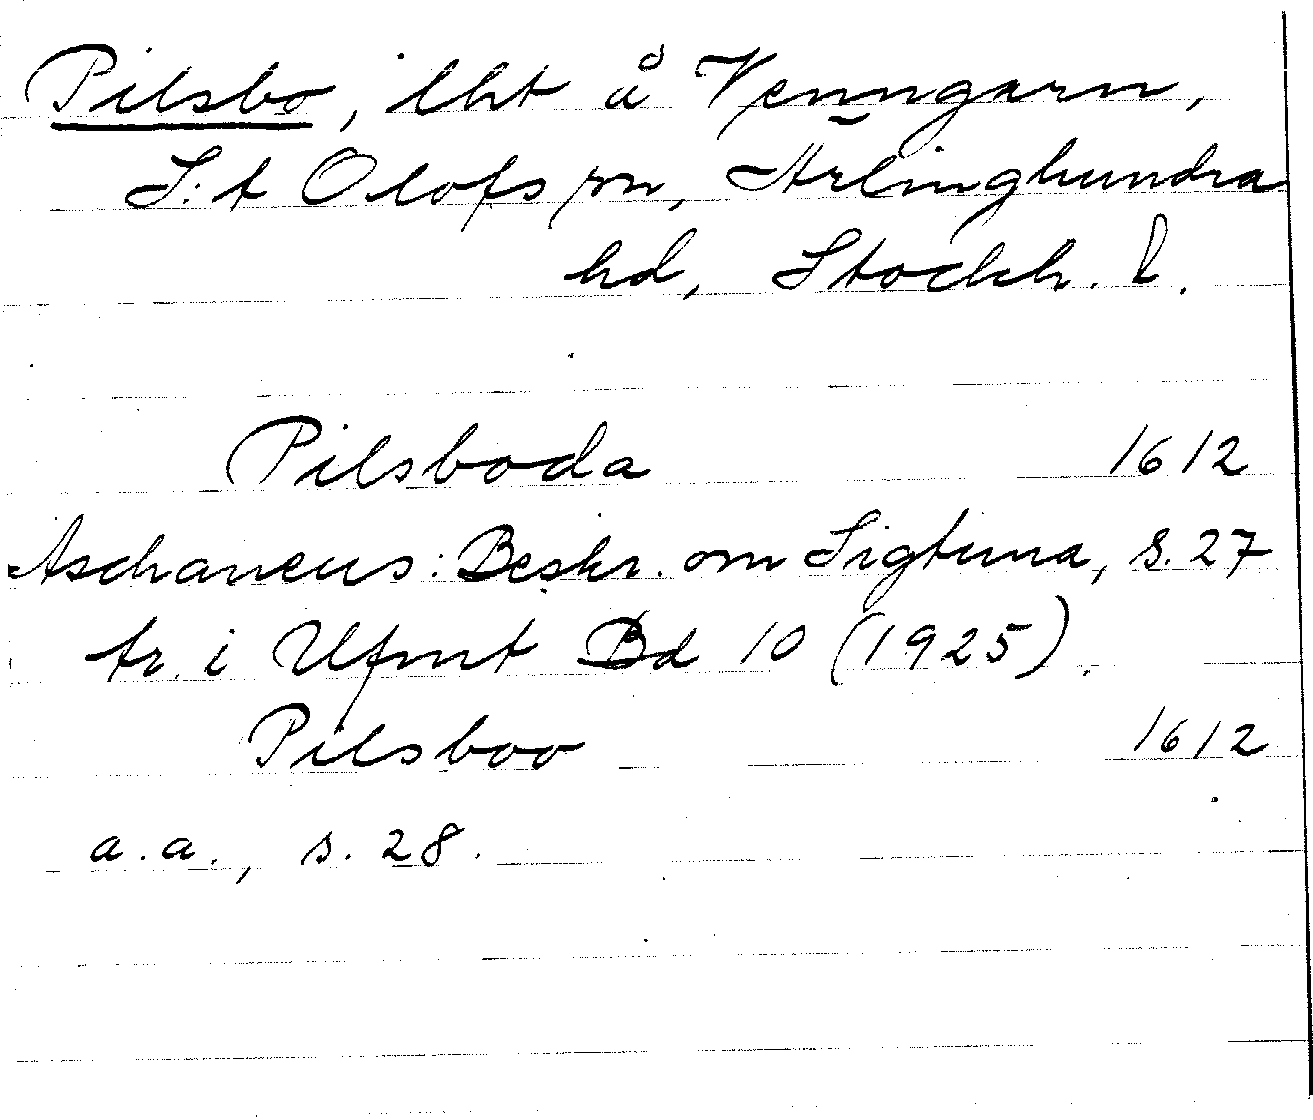 Pilsbo, lht å Venngarn,
S:t Olofs sn, Ärlinghundra
hd, Stockh. l.
Pilsboda 1612
Aschaneus: Beskr. om Sigtuna, s. 27
tr. i Ufmt Bd 10 (1925).
Pilsboo 1612
a.a., s. 28.